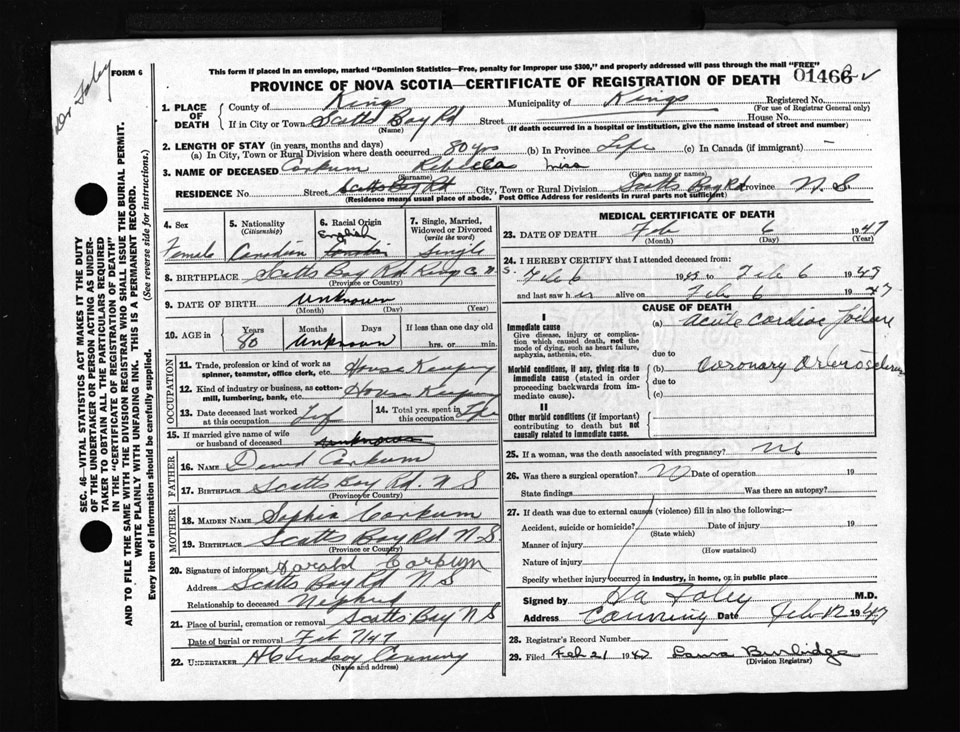 This form if placed in an envelope, marked "Dominion Statistics—Free, penalty for improper use $300," and properly addressed will pass through the mail "FREE"
FORM 6
Dr Foley
PROVINCE OF NOVA SCOTIA—CERTIFICATE OF REGISTRATION OF DEATH 01466
1. PLACE OF DEATH
County of Kings Municipality of Kings Registered No.
(For use of Registrar General only)
If in City or Town Scotts Bay Rd Street House No.
(Name) (If death occurred in a hospital or institution, give the name instead of street and number)
2. LENGTH OF STAY (in years, months and days)
(a) In City, Town or Rural Division where death occurred 80 yrs (b) In Province Life (c) In Canada (if immigrant) —
3. NAME OF DECEASED Corkum Rebecca
(Surname) (Given name or names)
RESIDENCE No. Street Scotts Bay Rd City, Town or Rural Division Scotts Bay Rd Province N. S.
(Residence means usual place of abode. Post Office Address for residents in rural parts not sufficient)
4. Sex Female
5. Nationality (Citizenship) Canadian
6. Racial Origin English
7. Single, Married, Widowed or Divorced (write the word) Single
8. BIRTHPLACE Scotts Bay Rd Kings Co N.
(Province or Country)
9. DATE OF BIRTH Unknown
(Month) (Day) (Year)
10. AGE in Years 80 Months Unknown Days If less than one day old hrs. or min.
OCCUPATION
11. Trade, profession or kind of work as spinner, teamster, office clerk, etc. House Keeping
12. Kind of industry or business, as cotton-mill, lumbering, bank, etc. House Keeping
13. Date deceased last worked at this occupation
14. Total yrs. spent in this occupation Life
15. If married give name of wife or husband of deceased Unknown
FATHER
16. NAME David Corkum
17. BIRTHPLACE Scotts Bay Rd. N S
(Province or Country)
MOTHER
18. MAIDEN NAME Sophia Corkum
19. BIRTHPLACE Scotts Bay Rd N.S.
(Province or Country)
20. Signature of informant Harold Corkum
Address Scotts Bay Rd N S
Relationship to deceased Nephew
21. Place of burial, cremation or removal Scotts Bay N S
Date of burial or removal Feb 7/47
22. UNDERTAKER H C Lindsay Canning
(Name and address)
MEDICAL CERTIFICATE OF DEATH
23. DATE OF DEATH Feb 6 1947
(Month) (Day) (Year)
24. I HEREBY CERTIFY that I attended deceased from:
Feb 6 1947 to Feb 6 1947
and last saw h er alive on Feb 6 1947
CAUSE OF DEATH
I
Immediate cause
Give disease, injury or complication which caused death, not the mode of dying, such as heart failure, asphyxia, asthenia, etc.
(a) Acute Cardiac Failure
due to
Morbid conditions, if any, giving rise to immediate cause (stated in order proceeding backwards from immediate cause).
(b) Coronary Arteriosclerosis
due to
(c)
II
Other morbid conditions (if important) contributing to death but not causally related to immediate cause.
25. If a woman, was the death associated with pregnancy? No
26. Was there a surgical operation? No Date of operation 19
State findings Was there an autopsy?
27. If death was due to external causes (violence) fill in also the following:—
Accident, suicide or homicide? Date of injury 19
(State which)
Manner of injury
(How sustained)
Nature of injury
Specify whether injury occurred in industry, in home, or in public place
Signed by Foley M.D.
Address Canning Date Feb 12 1947
28. Registrar's Record Number
29. Filed Feb 21 1947 Laura Burbidge
(Division Registrar)
SEC. 46—VITAL STATISTICS ACT MAKES IT THE DUTY
OF THE UNDERTAKER OR PERSON ACTING AS UNDER-
TAKER TO OBTAIN ALL THE PARTICULARS REQUIRED
IN THE "CERTIFICATE OF REGISTRATION OF DEATH"
AND TO FILE THE SAME WITH THE DIVISION REGISTRAR WHO SHALL ISSUE THE BURIAL PERMIT.
WRITE PLAINLY WITH UNFADING INK. THIS IS A PERMANENT RECORD.
Every item of information should be carefully supplied. (See reverse side for instructions.)